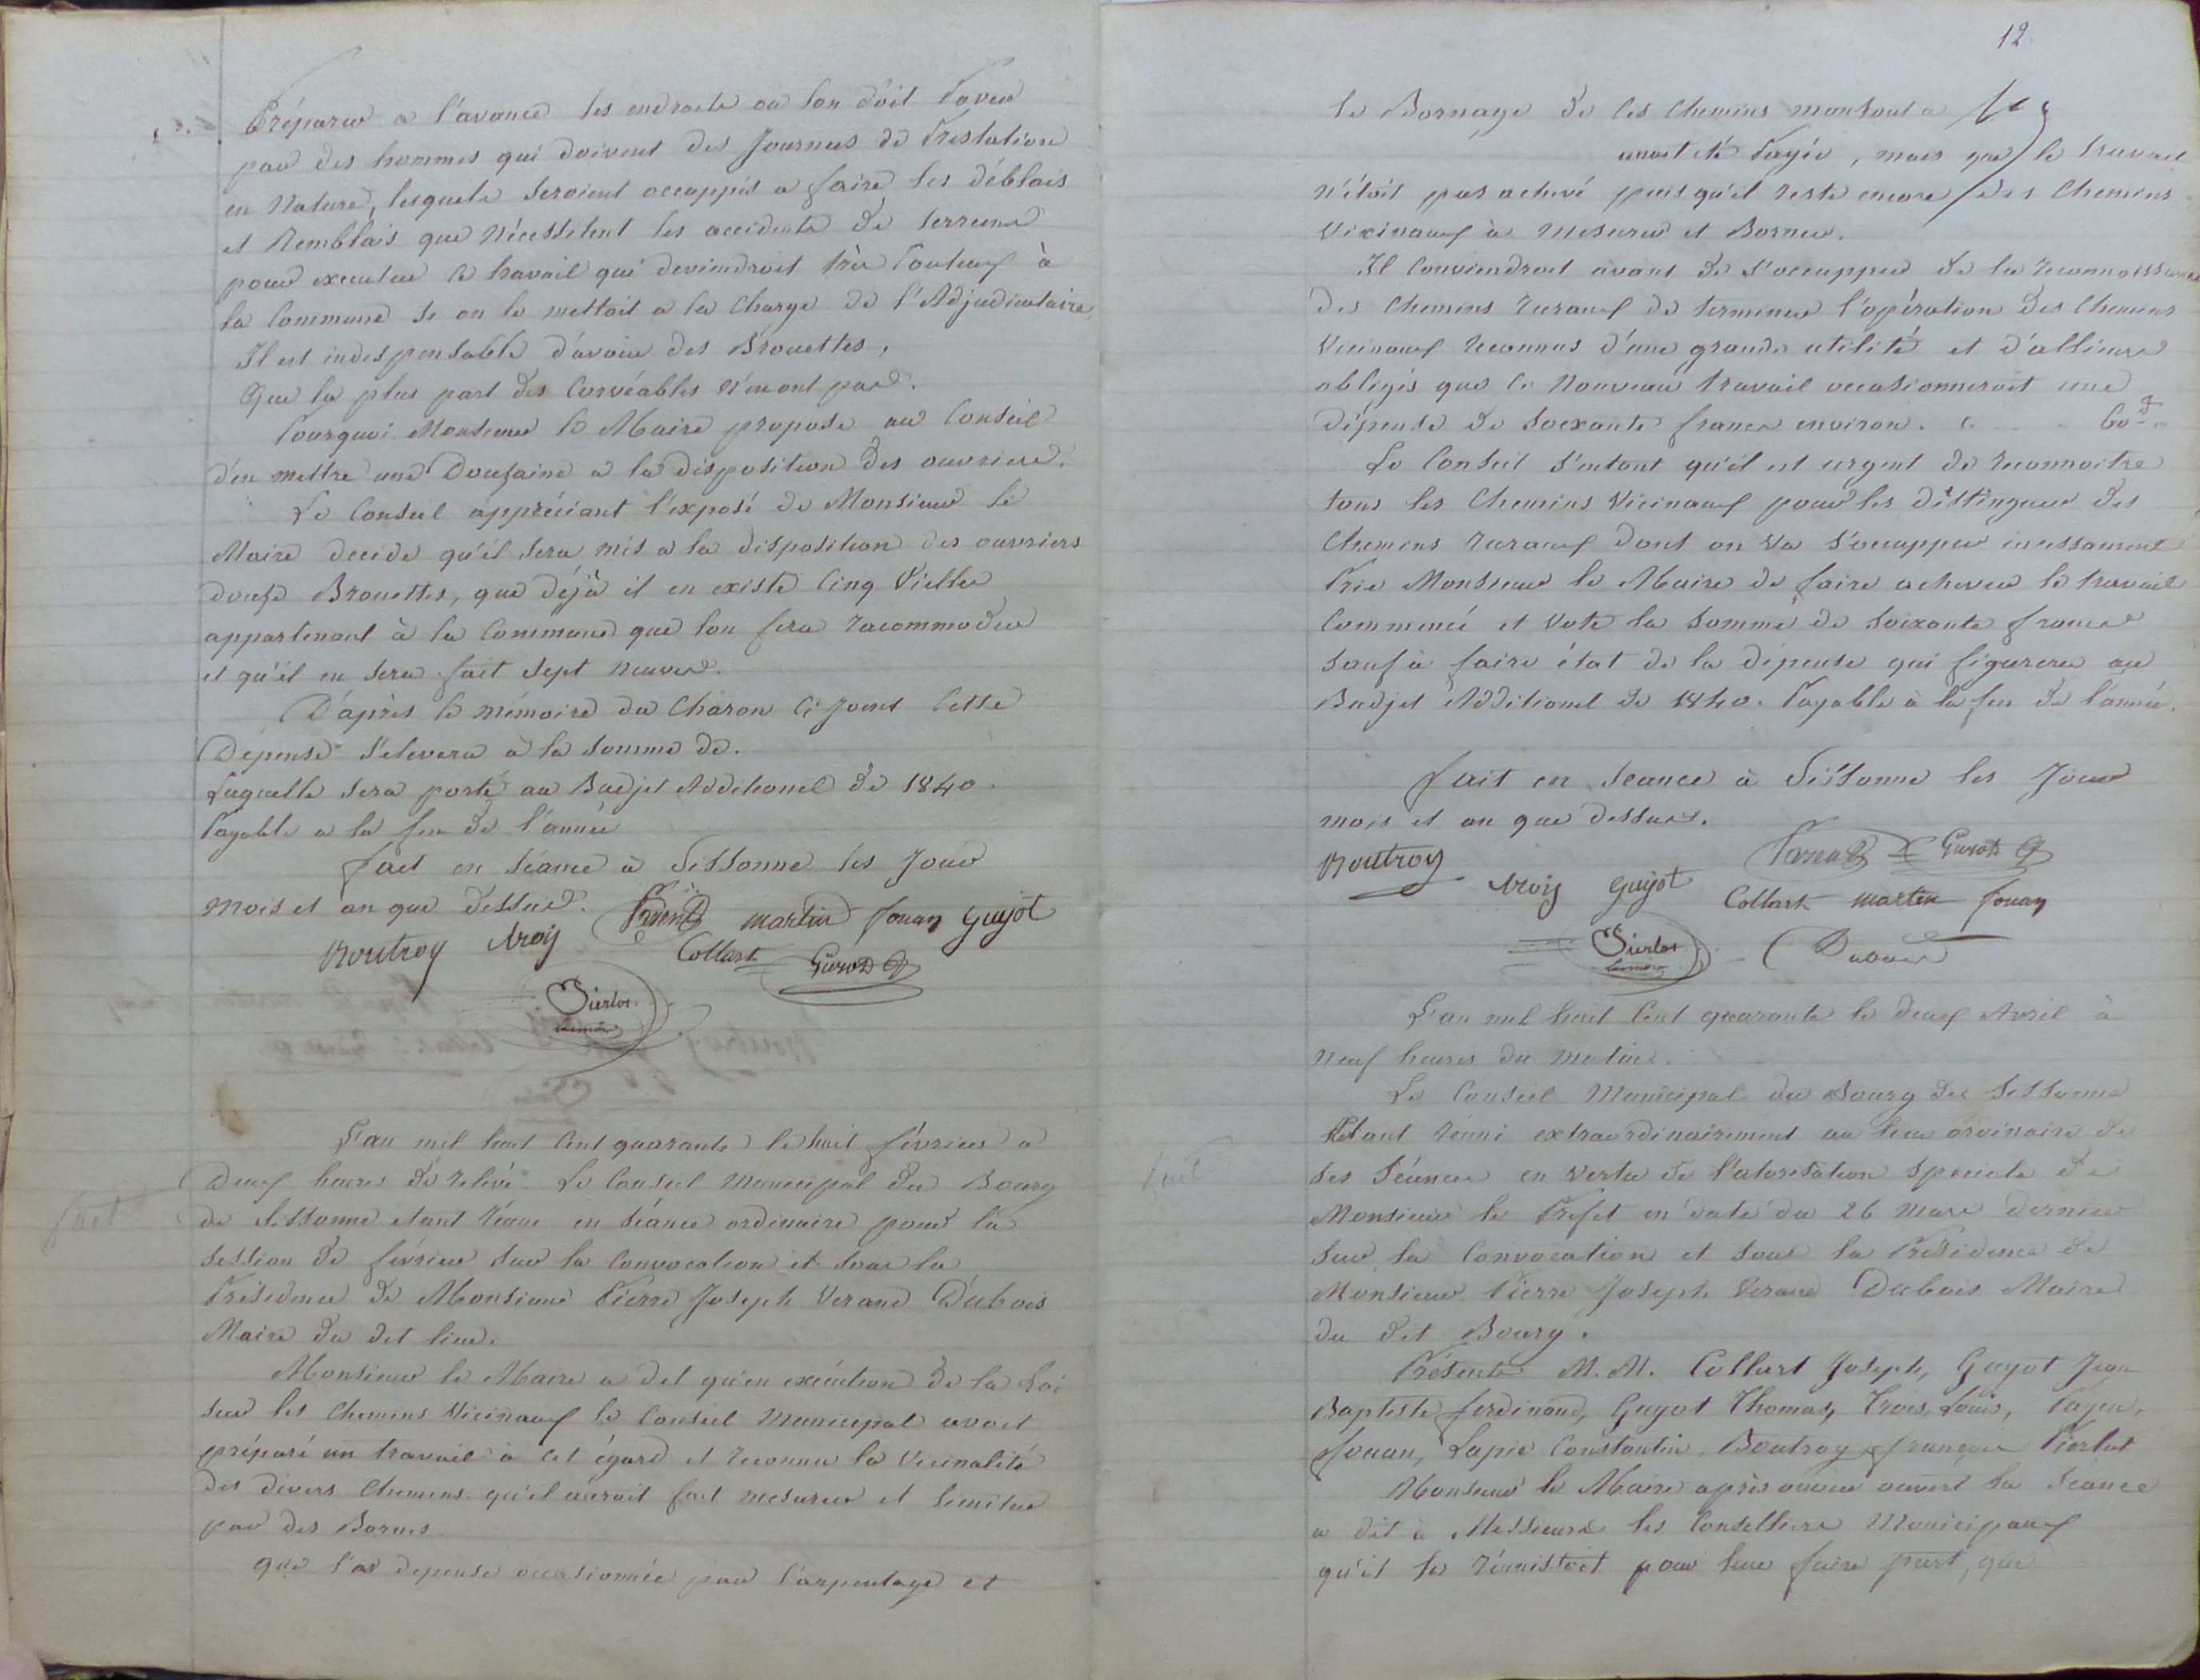 Préparer a l'avance les endroits ou lon doit Paver
par des hommes qui doivent des Journés de Prestation
en Nature, lesquels seroient occuppés a faire les déblais
et Remblais que Nécessitent les accidents de terrens
pour executer ce travail qui deviendroit très Couteux à
la Commune si on le mettoit a la Charge de l'Adjudicataire,
Il est indispensable d'avoir des Brouettes,
Que la plus part des Corvéables n'en ont pas.
Pourquoi Monsieur le Maire propose au Conseil
d'en mettre une Douzaine a la disposition des ouvriers.
Le Conseil appréciant l'exposé de Monsieur le
Maire decide qu'il sera mis a la disposition des ouvriers
douze Brouettes, que déjà il en existe Cinq Vielles
appartenant à la Commune que lon fera racommoder
et qu'il en sera fait sept neuves.
D'après le mémoire du Charon Ci Joint Cette
Dépense s'elevera à la somme de.
Laquelle sera porté au Budjet Additionel de 1840.
Payable a la fin de l'année
fait en séance à Sissonne les Jour
mois et an que dessus.
martin Jouan Guyot
Boutroy Collart
L'an mil huit Cent quarante le huit février a
Deux heures de relevé Le Conseil Municipal du Bourg
fait
de Sissonne etant réuni en séance ordinaire pour la
session de février sur la Convocation et sous la
Présidence de Monsieur Pierre Joseph Verand Dubois
Maire du dit lieu.
Monsieur le Maire a dit qu'en exécution de la Loi
sur les Chemins Vicinaux le Conseil Municipal avoit
préparé un travail à cet égard et reconnu la Vicinalité
des divers Chemins qu'il auroit fait mesurer et limiter
par des Bornes
que la depense occasionnée par l'arpentage et
12.
le Bornage de Ces Chemins montant a
avait été Payée, mais que le travail
n'étoit pas achevé puis qu'il reste encore des Chemins
Vixinaux à mesurer et Borner.
Il Conviendroit avant de s'occupper de la reconnoissance
des Chemins ruraux de terminer l'opération des Chemins
Vicinaux reconnus d'une grande utilité et d'allieurs
obligés que ce Nouveau travail occasionneroit une
dépense de soixante francs environ. 60
Le Conseil s'entant qu'il est urgent de reconnoitre
tous les Chemins Vicinaux pour les distinguer des
Chemins ruraux dont on Va s'occupper incessament
Prie Monsieur le Maire de faire achever le travail
Commencé et vote la somme de soixante francs
sauf à faire état de la dépense qui figurera au
Budjet Additionel de 1840. Payable à la fin de l'année.
fait en seance à Sissonne les Jour
mois et an que dessus.
Boutroy
Guyot Collart martin Jouan
Dubois
L'an mil huit Cent quarante le deux Avril à
neuf heures du matin.
Le Conseil Municipal du Bourg de Sissonne
Etant réuni extraordinairement au lieu ordinaire de
fait
ses Séances en vertu de l'atorisation spéciale de
Monsieur le Préfet en date du 26 mars dernier
sur la Convocation et sous la Présidence de
Monsieur Pierre Joseph Verand Dubois Maire
du dit Bourg.
Présents M.M. Collart Joseph, Guyot Jean
Baptiste ferdinand, Guyot Thomas, Louis,
Jouan, Lapie Constantin, Boutroy françois
Monsieur le Maire après avoir ouvert la séance
a dit à Messieurs les Conseillers Municipaux
qu'il les réunistoit pour leur faire part, que